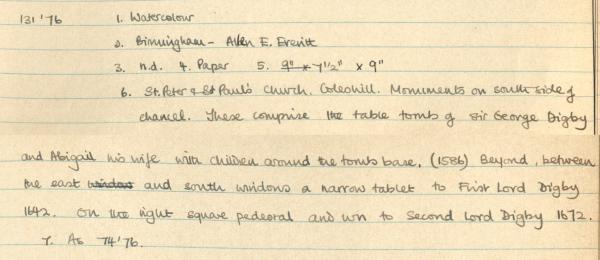 131'76 1. Watercolour
2. Birmingham - Allen E. Everitt
3. n.d. 4. Paper 5. 9" x 7 1/2" x 9"
6. St. Peter & St Paul's Church. Coleshill. Monuments on south side of
chancel. These comprise the table tomb of Sir George Digby
and Abigail his wife with children around the tomb base. (1586) Beyond, between
the east window and south windows a narrow tablet to First Lord Digby
1642. On the right square pedestal and urn to Second Lord Digby 1672.
7. As 74'76.